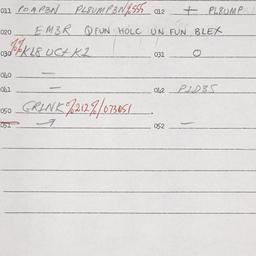 011 POAP3N PL8UMP3N/555 012 + PL8UMP
020 EM3R QFUN HOLC UN FUN BLEX
030 KL8UC+K1 031 O
040 —
041 — 042 P1D35
050 GR1NK%212%/073451
051 → 052 —